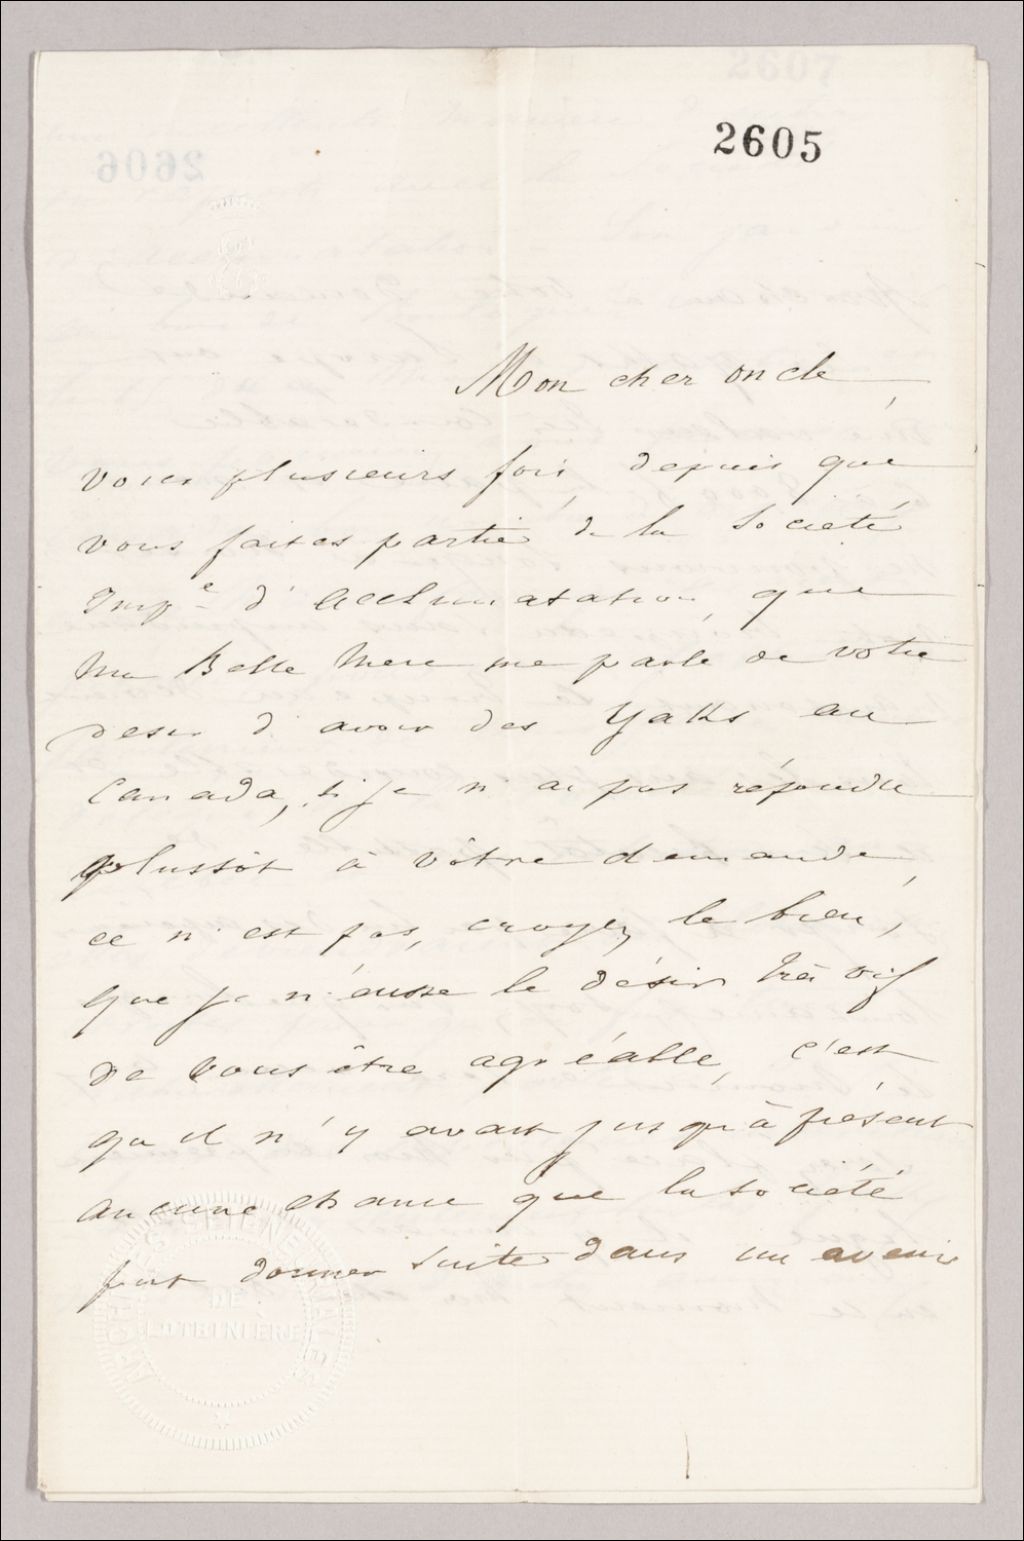 2605
Mon cher oncle,
voici plusieurs fois, depuis que
vous faites partie de la Société
Imp.e d'acclimatation, que
ma Belle Mere me parle de votre
desir d'avoir des Yaks au
Canada, si je n'ai pas répondu
plussôt à vôtre demande,
ce n'est pas, croyez le bien,
que je n'eusse le désir très vif
de vous être agréable, c'est
qu il n'y avait jusqu'à présent
aucune chance que la société
put donner suite dans un avenir
ARCHIVES SEIGNEURIALES
DE
LOTBINIÈRE
2606
2607